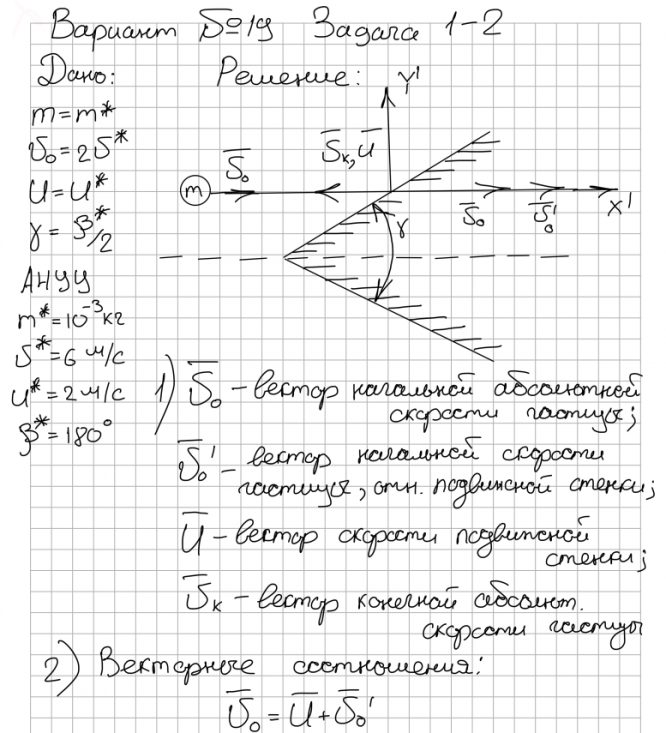 Вариант №19 Задача 1-2
Дано: Решение:
m=m*
υ₀=2υ*
U=U*
γ=β*/2
АНУУ
m*=10⁻³ кг
υ*=6 м/с
u*=2 м/с
β*=180°
Y'
ῡ₀
ῡₖ, ū
m
ῡ₀
ῡ₀'
X'
γ
1) ῡ₀ – вектор начальной абсолютной
скорости частицы;
ῡ₀' – вектор начальной скорости
частицы, отн. подвижной стенки;
Ū – вектор скорости подвижной
стенки;
ῡₖ – вектор конечной абсолют.
скорости частицы
2) Векторные соотношения:
ῡ₀ = Ū + ῡ₀'